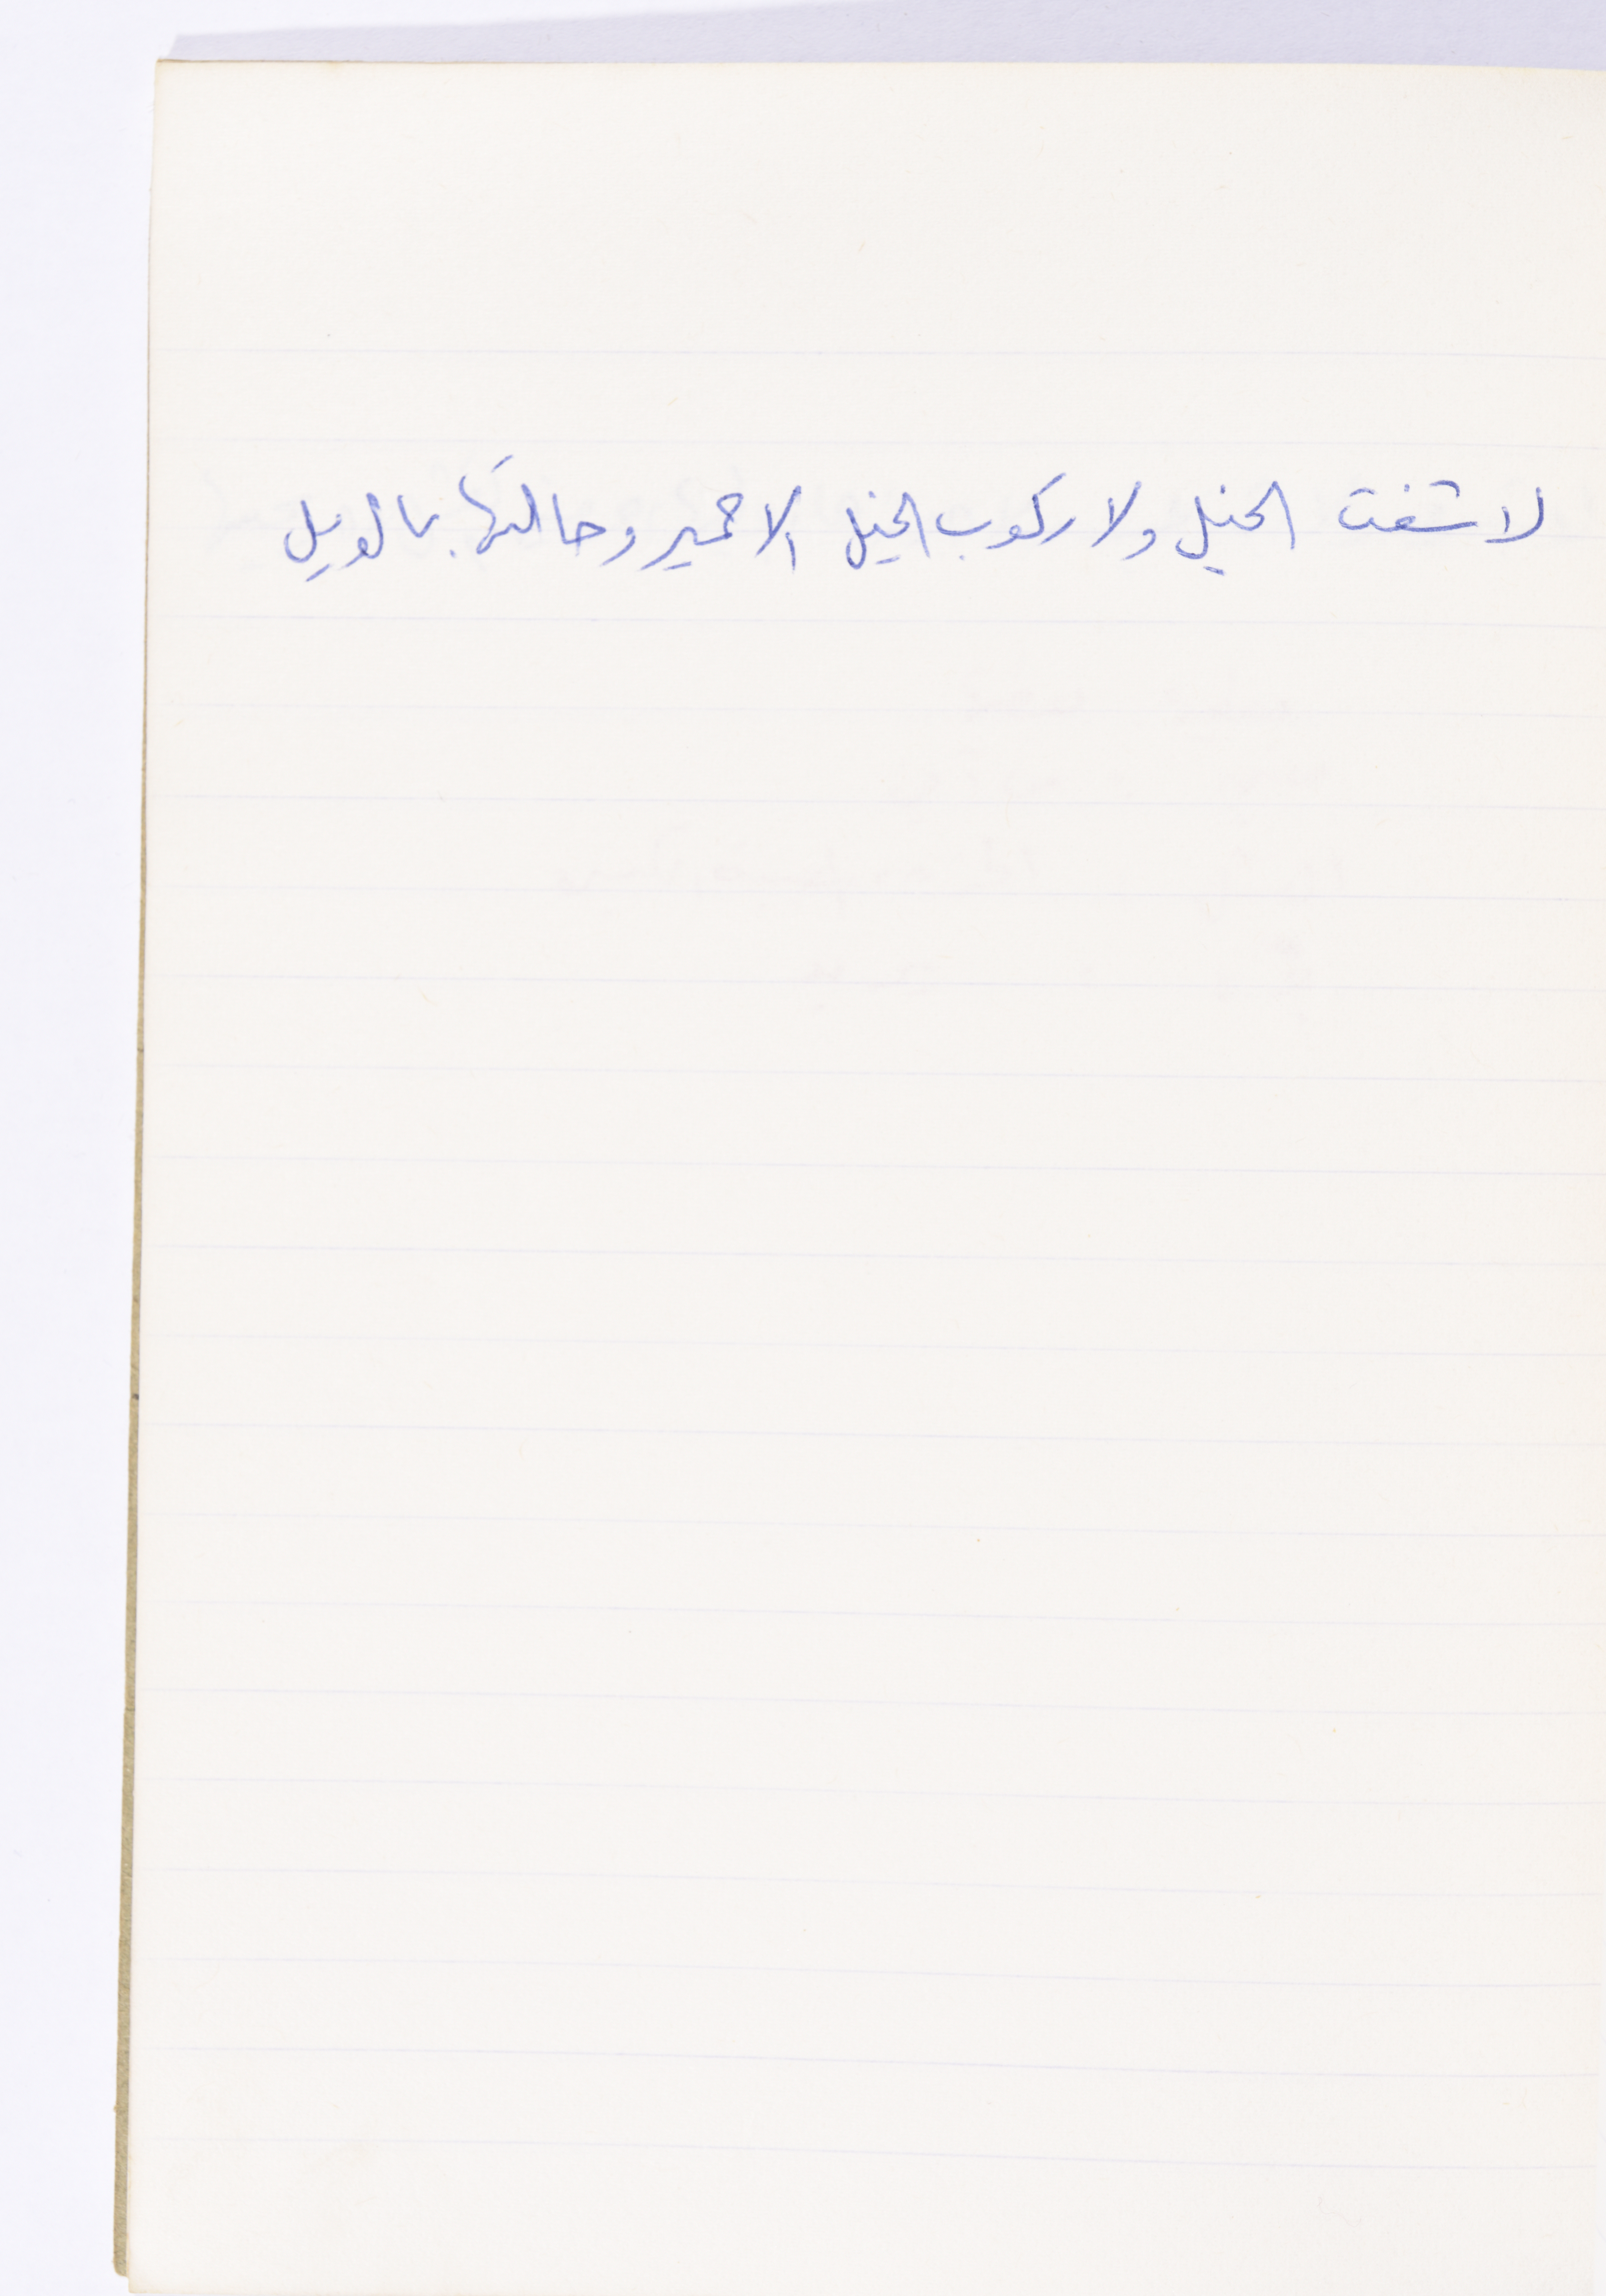 لا شفت الخيل ولا ركوب الخيل الا حمير وحالتها بالويل